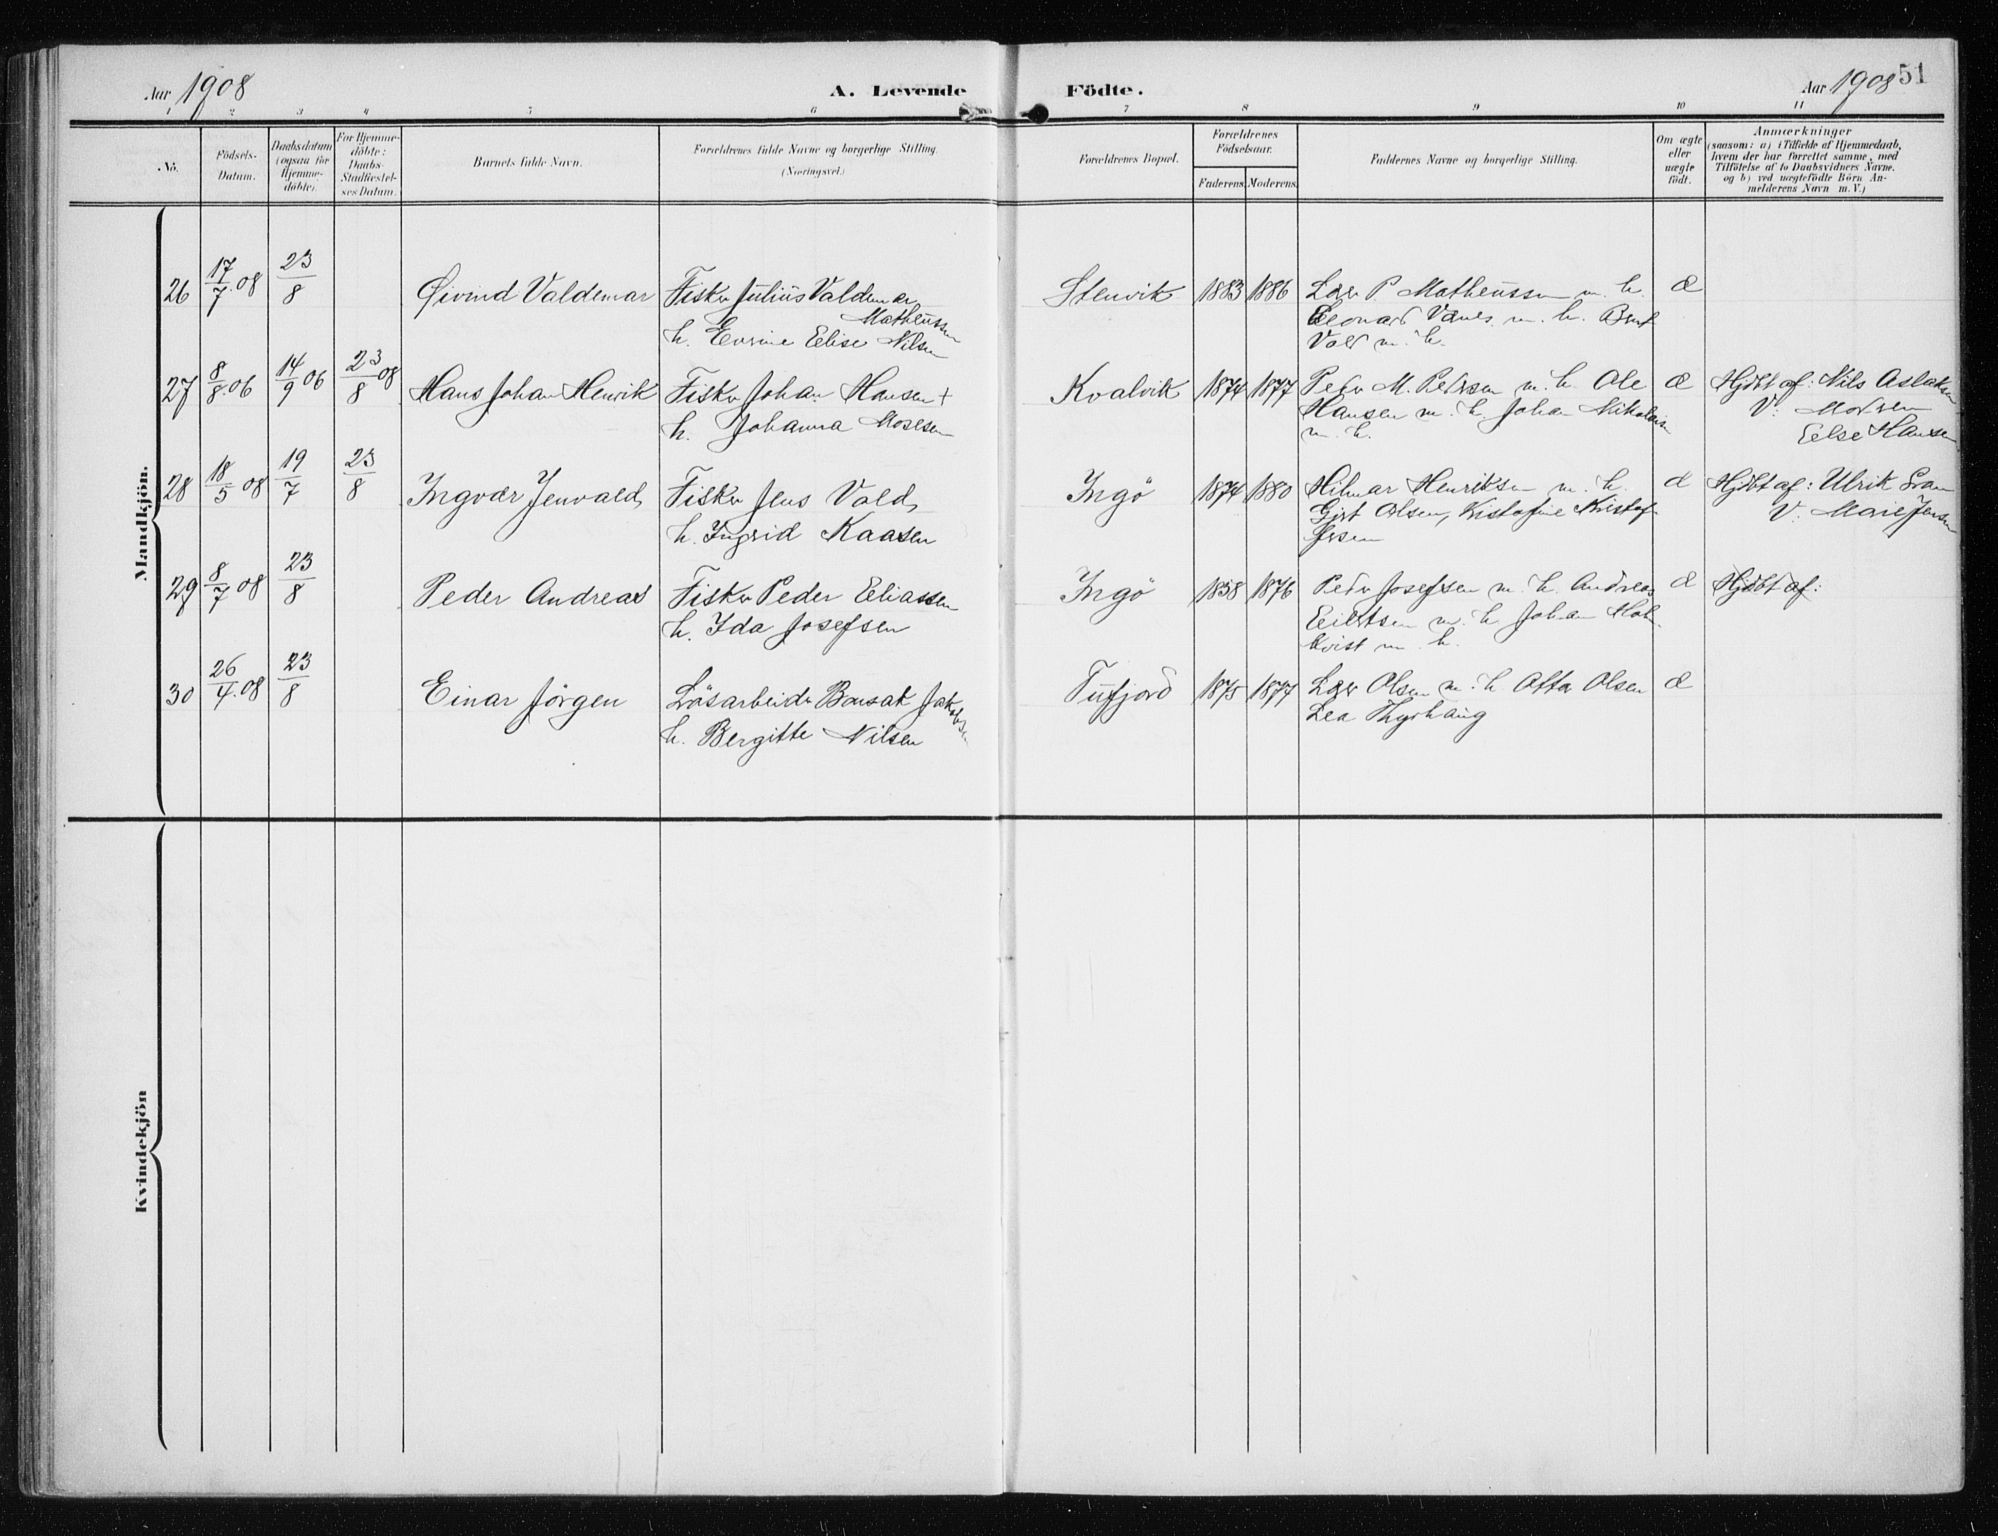 51
Aar 1908
A. Levende Födte.
Aar 1908
1 2 3 4 5 6 7 8 9 10 11
No.
Födsels-Datum.
Daabsdatum (ogsaa for Hjemme-döbte).
For Hjemme-döbte: Daabs-Stadfæstel-ses Datum.
Barnets fulde Navn.
Forældrenes fulde Navne og borgerlige Stilling.
(Næringsvei.)
Forældrenes Bopæl.
Forældrenes Födselsaar.
Faderens. Moderens.
Faddernes Navne og borgerlige Stilling.
Om ægte eller uægte födt.
Anmærkninger
(saasom: a) i Tilfælde af Hjemmedaab,
hvem der har forrettet samme, med
Tilföielse af to Daabsvidners Navne.
og b) ved uægtefödte Börn An-
melderens Navn m. V.)
Mandkjön.
26 17/7.08 23/8 Øivind Valdemar Fisker Julius Valdemar Stenvik 1883 1886 P. Matheussen m. h. Æ
Matheussen
h. Elise Nilsen
m. h.
m. h.
27 8/8.06 14/9 06 23/8 08 Hans Johan Henrik Fisker Johan Hansen + Kvalvik 1874 1877 Peder M. Pedersen m. h. Ole Æ Hjdbt af: Nils Aslaksen
h. Johanna Mosesen Hansen m. h. Johan Nikolaisen V:
m. h. Else Hansen
28 18/5 08 19/7 23/8 Ingvar Jenvald Fisker Jens Vald Ingö 1874 1880 Hilmar Henriksen m. h. Æ Hjdbt af: Ulrik
h. Ingrid Kaasen Olsen, V: Marie Jensen
29 8/7 08 23/8 Peder Andreas Fisker Peder Eliassen Ingö 1858 1876 Peder Josefsen m. h. Andreas Æ Hjdbt af:
h. Ida Josefsen Eilertsen m. h. Johan Holm-
kvist m. h.
30 26/4.08 23/8 Einar Jörgen Lösarbeider Jakobsen Tufjord 1875 1877 Olsen m. h. Olsen Æ
h. Bergitte Nilsen Lea
Kvindekjön